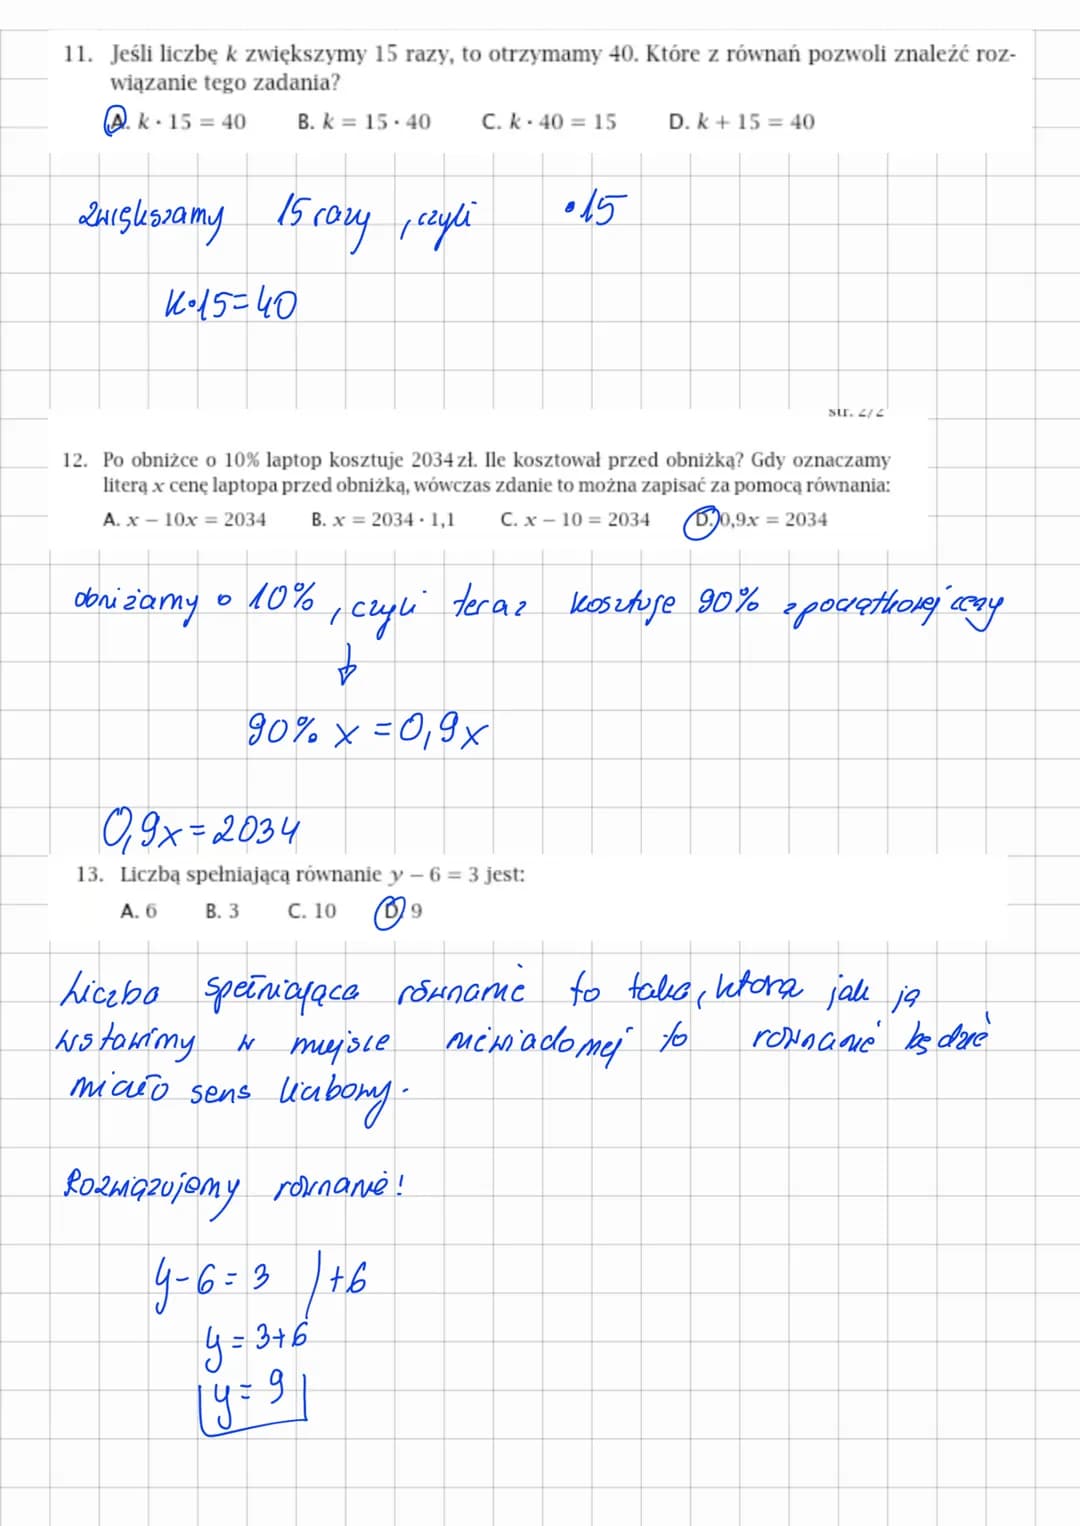 11. Jeśli liczbę k zwiększymy 15 razy, to otrzymamy 40. Które z równań pozwoli znaleźć roz-
wiązanie tego zadania?
A. k · 15 = 40 B. k = 15 · 40 C. k · 40 = 15 D. k + 15 = 40
zwiększamy 15 razy, czyli ·15
k·15=40
str. 2/2
12. Po obniżce o 10% laptop kosztuje 2034 zł. Ile kosztował przed obniżką? Gdy oznaczamy
literą x cenę laptopa przed obniżką, wówczas zdanie to można zapisać za pomocą równania:
A. x − 10x = 2034 B. x = 2034 · 1,1 C. x − 10 = 2034 D. 0,9x = 2034
obniżamy o 10%, czyli teraz kosztuje 90% z początkowej ceny
↓
90% x = 0,9x
0,9x = 2034
13. Liczbą spełniającą równanie y − 6 = 3 jest:
A. 6 B. 3 C. 10 D. 9
Liczba spełniająca równanie to taka, którą jak ją
wstawimy w miejsce niewiadomej to równanie będzie
miało sens liczbowy.
Rozwiązujemy równanie!
y-6=3 /+6
y=3+6
y=9